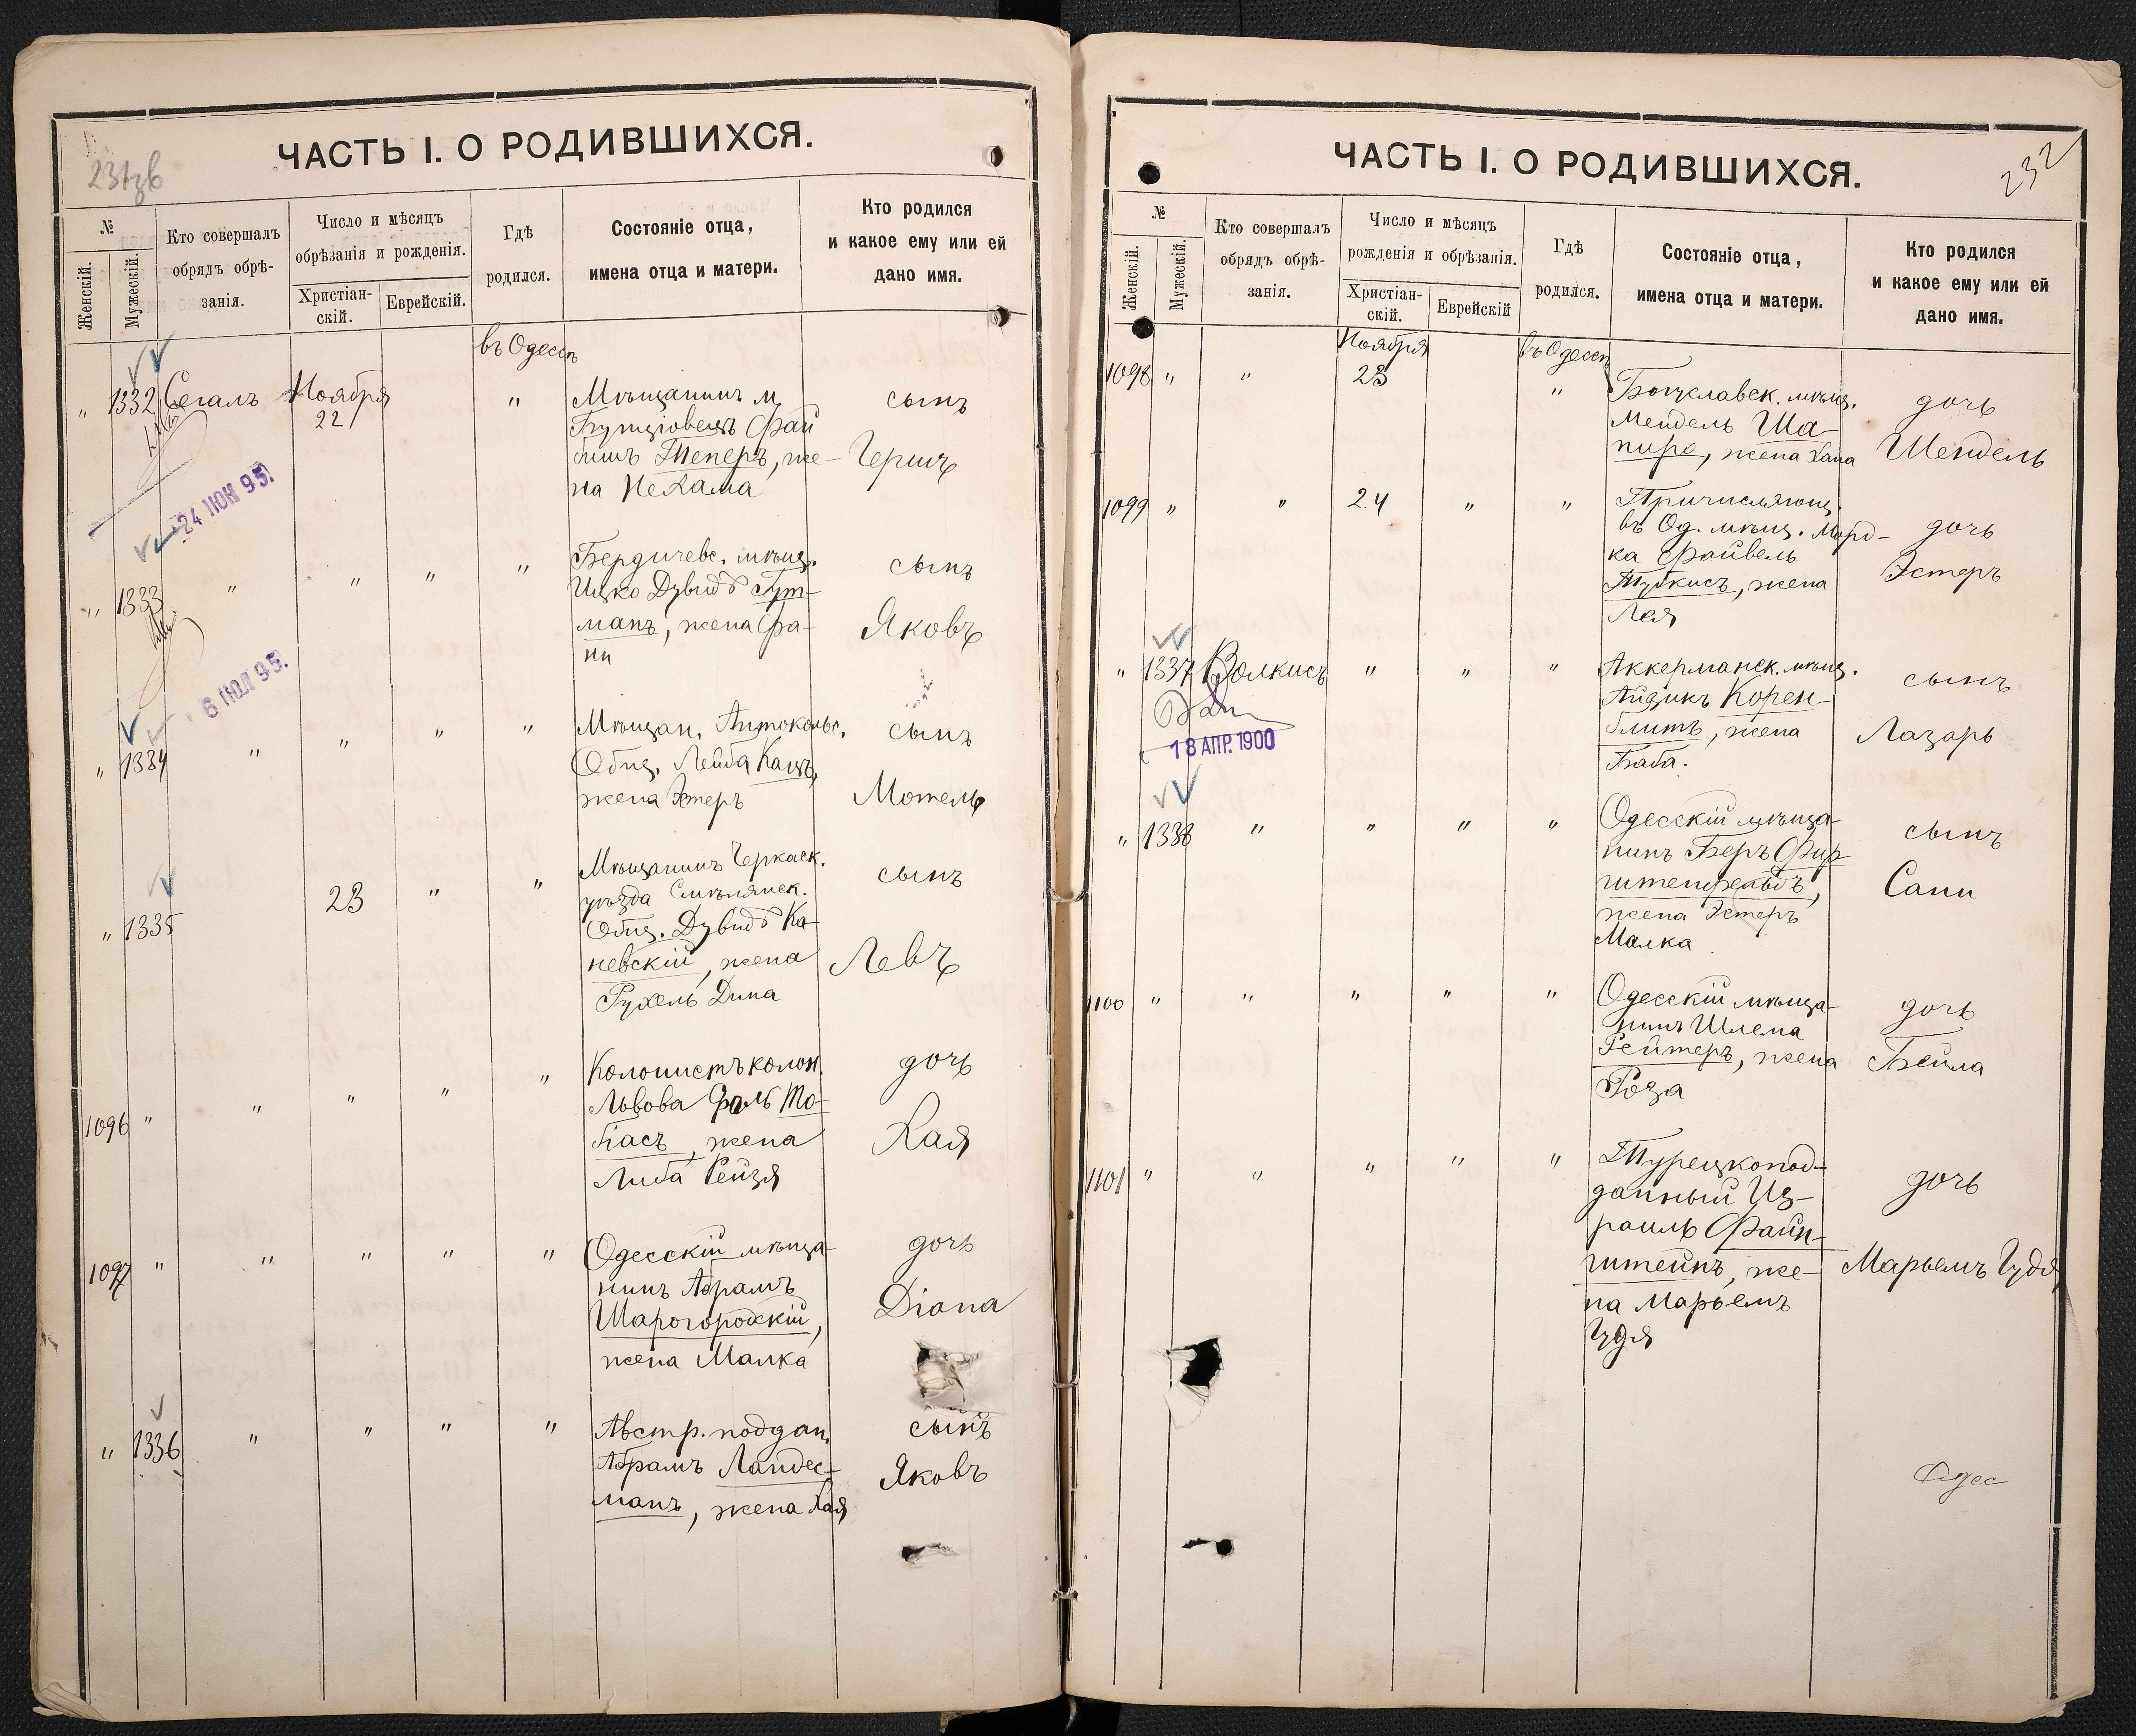 231об
ЧАСТЬ I. О РОДИВШИХСЯ.
№
Женскій.
Мужескій.
Кто совершалъ
обрядъ обрѣ-
занія.
Число и мѣсяцъ
обрѣзанія и рожденія.
Христіан-
скій.
Еврейскій.
Гдѣ
родился.
Состояніе отца,
имена отца и матери.
Кто родился
и какое ему или ей
дано имя.
въ Одессѣ
" 1332 Сегалъ Ноября 22 "
Мѣщанинъ м.
Фай
бишъ Теперъ, же-
на Нехама
сынъ
Гершъ
24 ІЮН 95.
" 1333 " " " "
Бердичевс. мѣщ.
Ицко Дувидъ Гут-
манъ, жена Фа-
ни
сынъ
Яковъ
6 ІЮЛ 95.
" 1334 " " " "
Мѣщан. Антокольс.
Общ. Лейба Кацъ,
жена Эстеръ
сынъ
Мотель
" 1335 23 " "
Мѣщанинъ Черкаск.
уѣзда Смѣлянск.
Общ. Дувидъ Ка-
невскій, жена
Рухель Дина
сынъ
Левъ
1096 " " " " "
Колонистъ колон.
Львова То-
біасъ, жена
Либа Рейзя
дочь
Хая
1097 " " " " "
Одесскій мѣща-
нинъ Абрамъ
Шарогородскій,
жена Малка
дочь
Diana
" 1336 " " " "
Австр. поддан.
Абрамъ Ландес-
манъ, жена Хая
сынъ
Яковъ
232
ЧАСТЬ I. О РОДИВШИХСЯ.
№
Женскій.
Мужескій.
Кто совершалъ
обрядъ обрѣ-
занія.
Число и мѣсяцъ
рожденія и обрѣзанія.
Христіан-
скій.
Еврейскій
Гдѣ
родился.
Состояніе отца,
имена отца и матери.
Кто родился
и какое ему или ей
дано имя.
Ноября
въ Одессѣ
1098 " " 23 "
Богуславск. мѣщ.
Мендель Ша-
пиро, жена Хана
дочь
Шендель
1099 " " 24 " "
Причисляющ.
въ Од. мѣщ. Морд-
ка Файвель
Тубкисъ, жена
Лея
дочь
Эстеръ
" 1337 Волкисъ " " "
Аккерманск. мѣщ.
Айзикъ Корен-
блитъ, жена
Баба.
сынъ
Лазарь
18 АПР. 1900
" 1338 " " " "
Одесскій мѣща-
нинъ Беръ Фир-
штенфельдъ,
жена Эстеръ
Малка
сынъ
Сани
1100 " " " " "
Одесскій мѣща-
нинъ Шлема
Рейтеръ, жена
Роза
дочь
Бейла
1101 " " " " "
Турецкопод-
данный Из-
раиль Файн-
штейнъ, же-
на Марьемъ
Гудя
дочь
Марьемъ Гудя
Одес